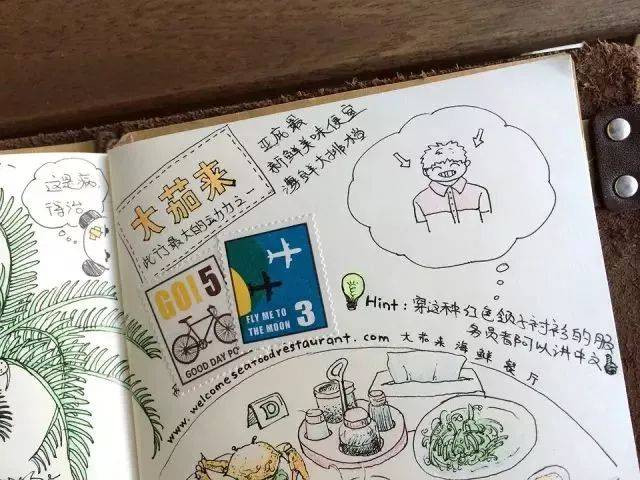 这是病
得治
大茄来
此行最大的动力之一
亚庇最
新鲜美味便宜
海鲜大排档
GO! 5
GOOD DAY PO
FLY ME TO
THE MOON 3
Hint: 穿这种红色领子衬衫的服
务员都可以讲中文
www.welcomeseafoodrestaurant.com 大茄来海鲜餐厅
D